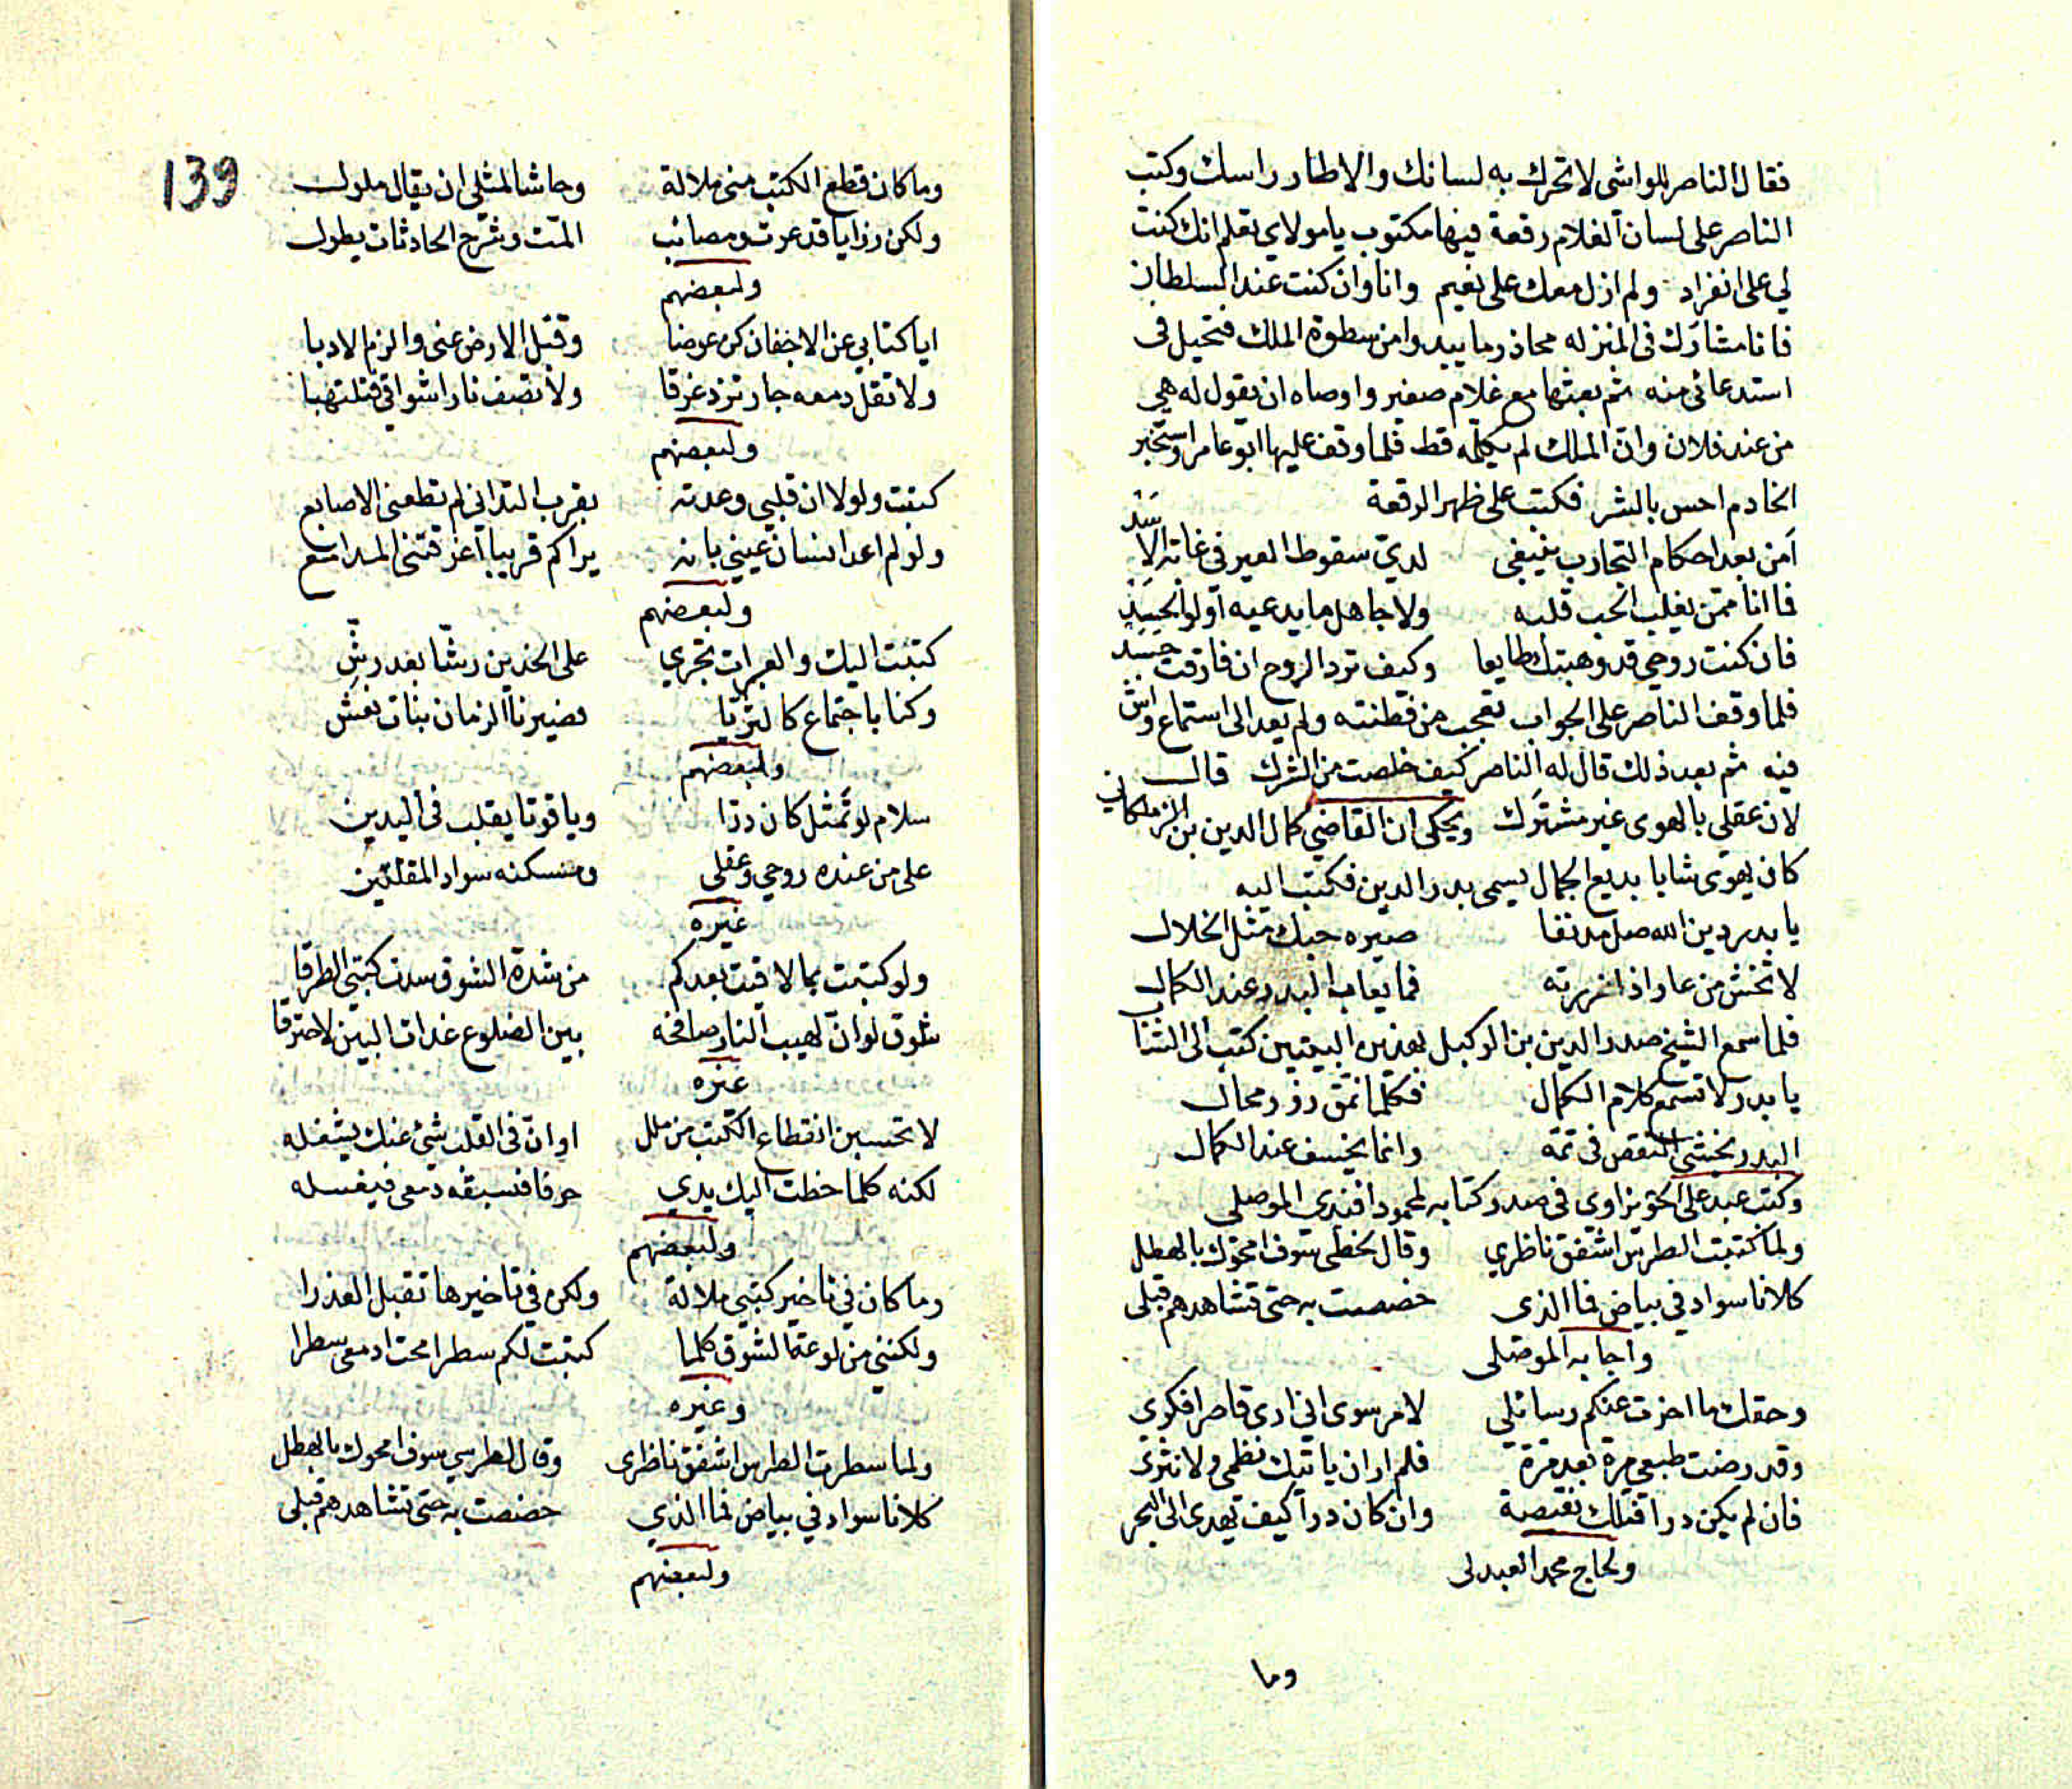 فقال الناصر للواشى لا تحرك به لسانك والا طار راسك وكتب
الناصر على لسان الغلام رقعة فيها مكتوب يا مولاي تعلم انك كنت
لي على انفراد ولم ازل معك على نعيم وانا وان كنت عند السلطان
فانا مشارك فى المنزله محاذر ما يبدوا من سطوة الملك فتحيل فى
استدعائى منه ثم بعثها مع غلام صغير واوصاه ان يقول له هي
من عند فلان وان الملك لم يكلمه قط فلما وقف عليها ابو عامر واستخبر
الخادم احس بالشر فكتب على ظهر الرقعة
أمن بعد احكام التجارب ينبغى لدي سقوط العير فى غابة الاسد
فما انا ممن يغلب الحب قلبه ولا جاهل ما يدعيه اولوا الحسد
فان كنت روحي قد وهبتك طايعا وكيف ترد الروح ان فارقت جسد
فلما وقف الناصر على الجواب تعجب من فطنته ولم يعد الى استماع واش
فيه ثم بعد ذلك قال له الناصر كيف خلصت من الشرك قال
لان عقلى بالهوى غير مشترك ويحكى ان القاضي كمال الدين بن الزملكاني
كان يهوى شابا بديع الجمال يسمى بدر الدين فكتب اليه
يا بدر دين الله صل مدنفا صيره حبك مثل الخلال
لا تخش من عار اذا زرته فما يعاب البدر عند الكمال
فلما سمع الشيخ صدر الدين بن الوكيل بهذين البيتين كتب الى الشا
يا بدر لا تسمع كلام الكمال فكلما نمق زور محال
البدر يخشى النقص فى تمه وانما يخسف عند الكمال
وكتب عبد على الحويزاوى فى صدر كتابه لمحمود افندى الموصلى
ولما كتبت الطرس اشفق ناظري وقال لخطى سوف امحوك بالهطل
كلانا سواد في بياض فما الذى خصصت به حتى تشاهدهم قبلى
واجابه الموصلى
وحقك ما اخرت عنكم رسائلي لامر سوى اني ارى قاصرا فكرى
وقد رضت طبعي مرة بعد مرة فلم ار ان ياتيك نظمى ولا نثرى
فان لم يكن درا فتلك نقيصة وان كان درا كيف يهدى الى البحر
ولحاج محمد العبدلى
وما
139
وما كان قطع الكتب منى ملالة وحاشا لمثلى ان يقال ملول
ولكن رزايا قد عرت ومصائب المت وشرح الحادثات يطول
ولبعضهم
ايا كتابي عن الاجفان كن عوضا وقبل الارض عنى والزم الادبا
ولا تقل دمعه جار تزد غرقا ولا تصف نار اشواقي فتلتهبا
ولبعضهم
كتبت ولولا ان قلبي وعدته بقرب التدانى لم تطعنى الاصابع
ولو لم اعد انسان عيني بانه يراكم قريبا أغرقتنى المدامع
ولبعضهم
كتبت اليك والعبرات تجري على الخدين رشا بعد رش
وكنا باجتماع كالثريا فصيرنا الزمان بنات نعش
ولبعضهم
سلام لو تمثل كان درا وياقوتا يقلب فى اليدين
على من عنده روحي وعقلى ومسكنه سواد المقلتين
غيره
ولو كتبت بما لاقيت بعدكم من شدة الشوق سدت كتبى الطرقا
شوق لو ان لهيب النار صافحه بين الضلوع غداة البين لاحترقا
غيره
لا تحسبن انقطاع الكتب من ملل او ان فى القلب شئ عنك يشغله
لكنه كلما خطت اليك يدي حرفا فسبقه دمعى فيغسله
ولبعضهم
وما كان في تاخير كتبي ملالة ولكن في تاخيرها تقبل العذرا
ولكننى من لوعة الشوق كلما كتبت لكم سطرا محت ادمعى سطرا
وغيره
ولما سطرت الطرس اشفق ناظرى وقال الطرسي سوف امحوك بالهطل
كلانا سواد في بياض فما الذي خصصت به حتى تشاهدهم قبلى
ولبعضهم